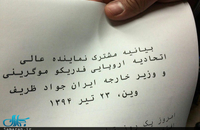 بیانیه مشترک نماینده عالی
اتحادیه اروپایی فدریکو موگرینی
و وزیر خارجه ایران جواد ظریف
وین، ۲۳ تیر ۱۳۹۴